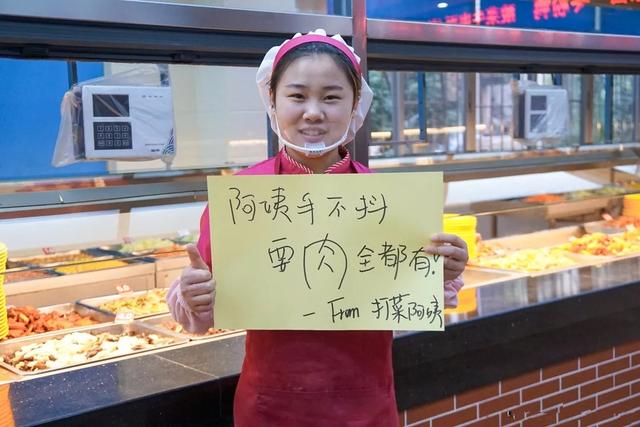 阿姨手不抖
要肉全都有!
— From 打菜阿姨